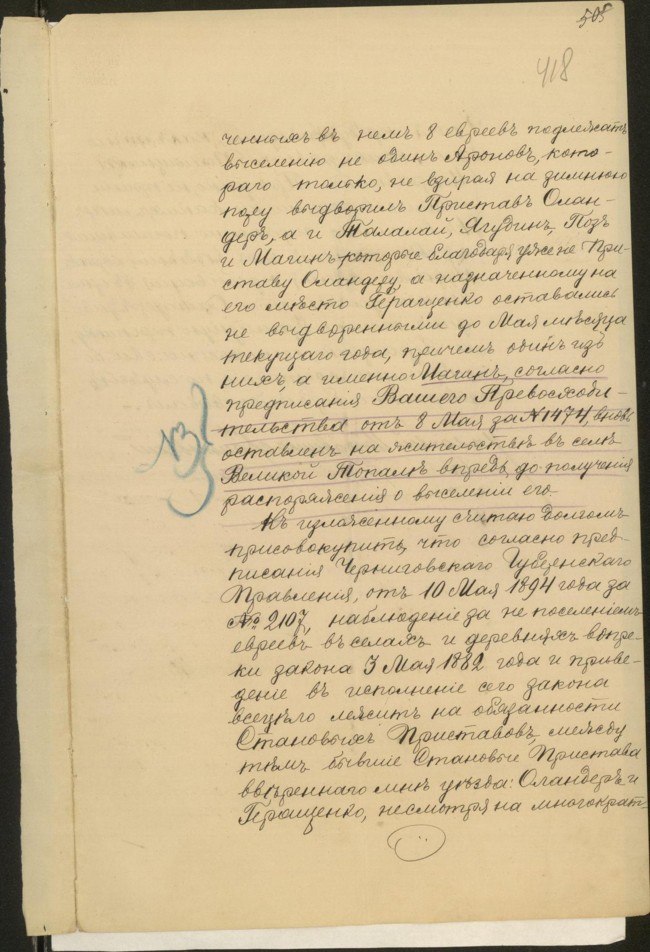 508
418
ченныхъ въ немъ 8 евреевъ подлежатъ
выселенію не одинъ Ароновъ, кото-
раго только, не взирая на зимнюю
пору выдворилъ Приставъ Олан-
деръ, а и Таламай, Ягудинъ, Позъ
и Магинъ которые благодаря уже не При-
ставу Оландеру, а назначенному на
его мѣсто Геращенко оставались
не выдворенными до Мая мѣсяца
текущаго года, причемъ одинъ изъ
нихъ, а именно Магинъ, согласно
предписанія Вашего Превосходи-
тельства отъ 8 Мая за № 1474, вновь
оставленъ на жительствѣ въ селѣ
Великой Топалѣ впредь до полученія
распоряженія о выселеніи его.
№3
Къ изложенному считаю долгомъ
присовокупить, что согласно пред-
писанія Черниговскаго Губернскаго
Правленія, отъ 10 Мая 1894 года за
№ 2107, наблюденіе за не поселеніемъ
евреевъ въ селахъ и деревняхъ вопре-
ки закона 3 Мая 1882 года и приве-
деніе въ исполненіе сего закона
всецѣло лежитъ на обязанности
Становыхъ Приставовъ, между
тѣмъ бывшіе Становые Пристава
ввѣреннаго мнѣ уѣзда: Оландеръ и
Геращенко, несмотря на многократ-